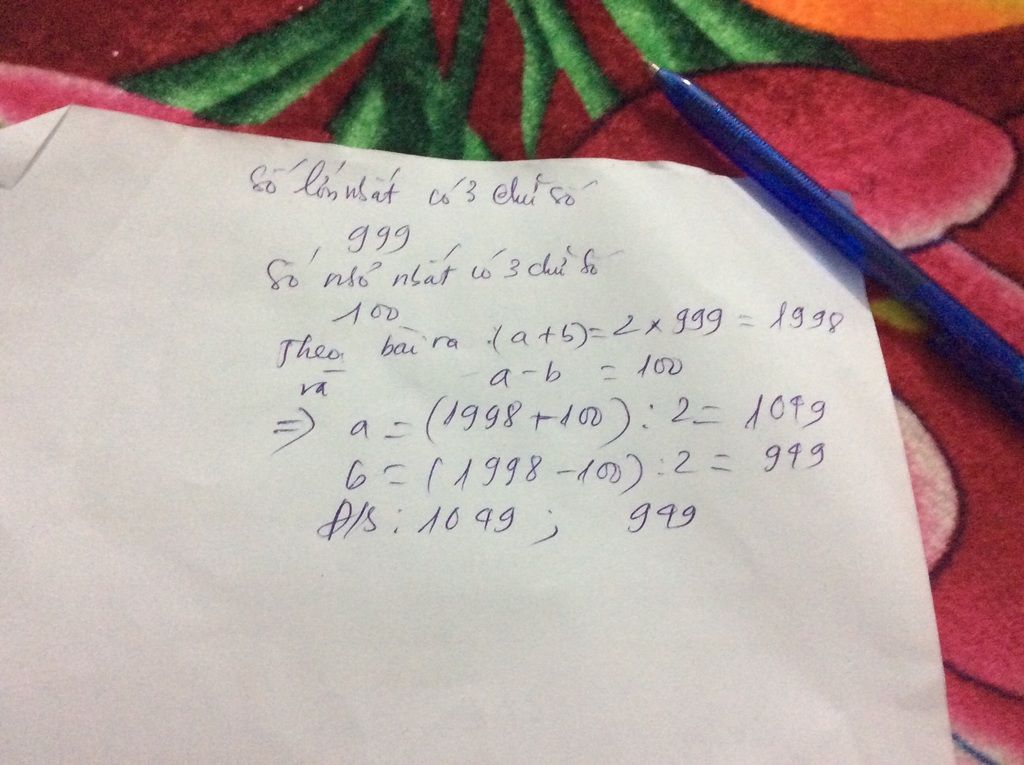 Số lớn nhất có 3 chữ số
999
Số nhỏ nhất có 3 chữ số
100
Theo bài ra (a+b)=2×999=1998
và a-b = 100
=> a=(1998+100):2=1049
b=(1998-100):2=949
Đ/S: 1049; 949